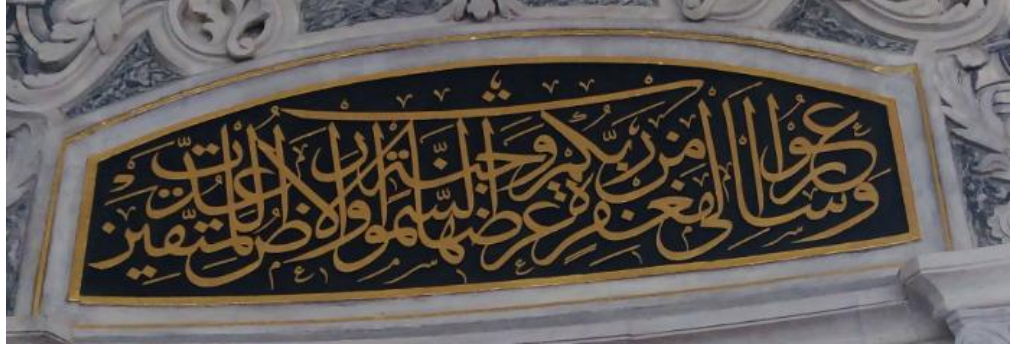 وسارعوا الى مغفرة من ربكم وجنة عرضها السموات والارض اعدت للمتقين